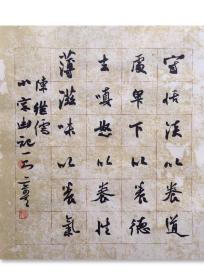 守恬淡以養道
處卑下以養德
去嗔怒以養性
薄滋味以養氣
陳继儒
小窗幽記